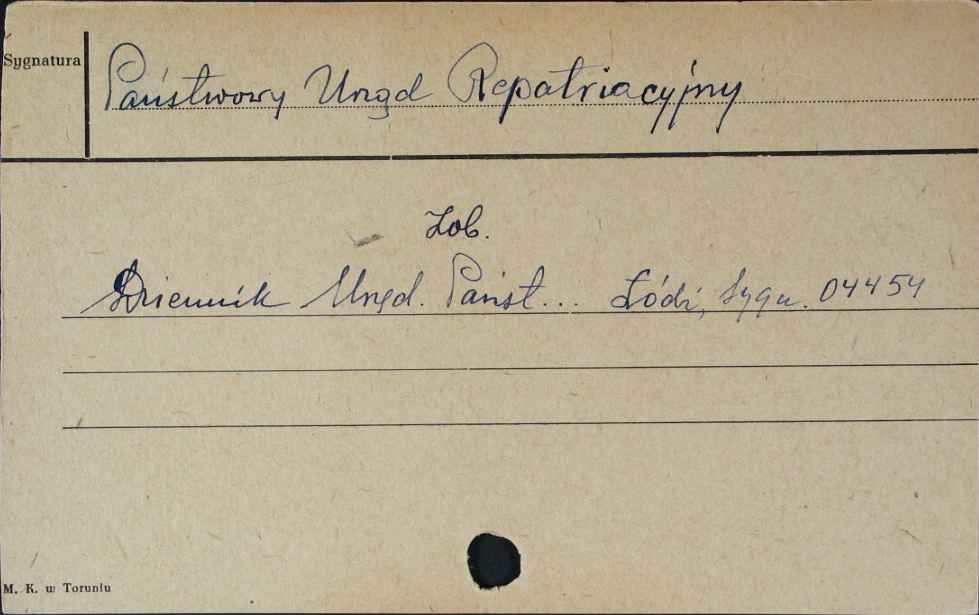 Sygnatura
Państwowy Urząd Repatriacyjny
Zob.
Dziennik Urzęd. Państ... Łódź, Sygn. 04454
M. K. w Toruniu